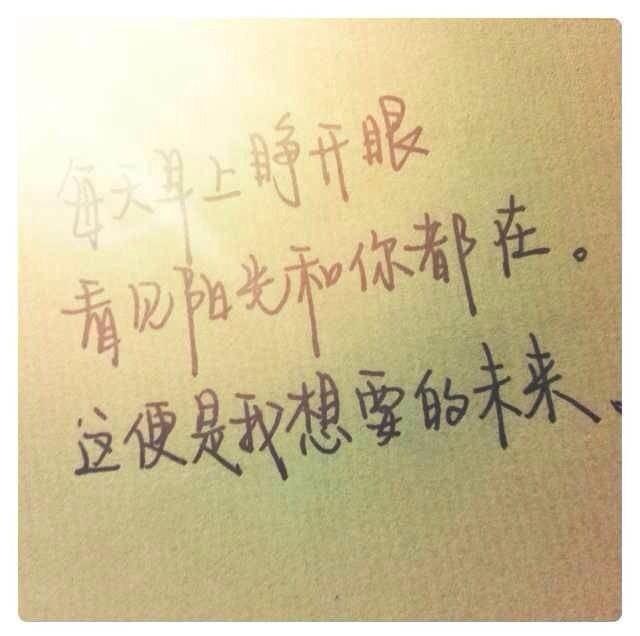 每天早上睁开眼
看见阳光和你都在。
这便是我想要的未来、